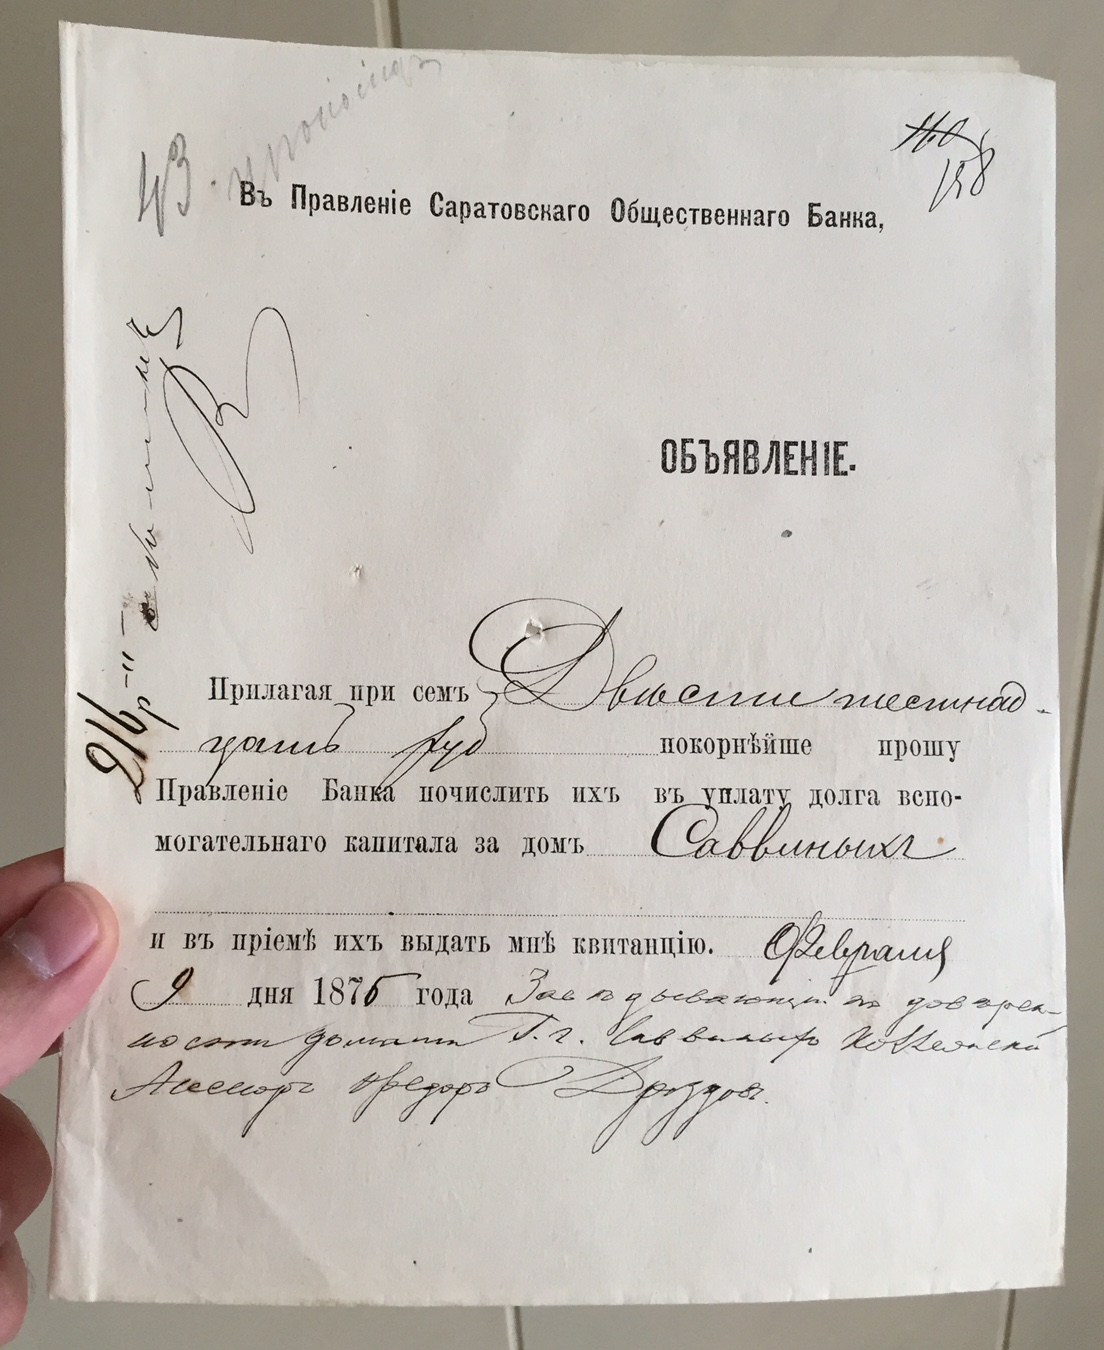 43.
Въ Правленіе Саратовскаго Общественнаго Банка,
ОБЪЯВЛЕНІЕ.
216 р
Прилагая при семъ Двѣсти шестнад-
цать руб покорнѣйше прошу
Правленіе Банка почислить ихъ въ уплату долга вспо-
могательнаго капитала за домъ Саввиныхъ
и въ пріемѣ ихъ выдать мнѣ квитанцію. Февраля
9 дня 1876 года Завѣдывающій по довѣрен-
ности домами Г.г. Саввиныхъ Коллежскій
Асесоръ Федоръ Дроздовъ.